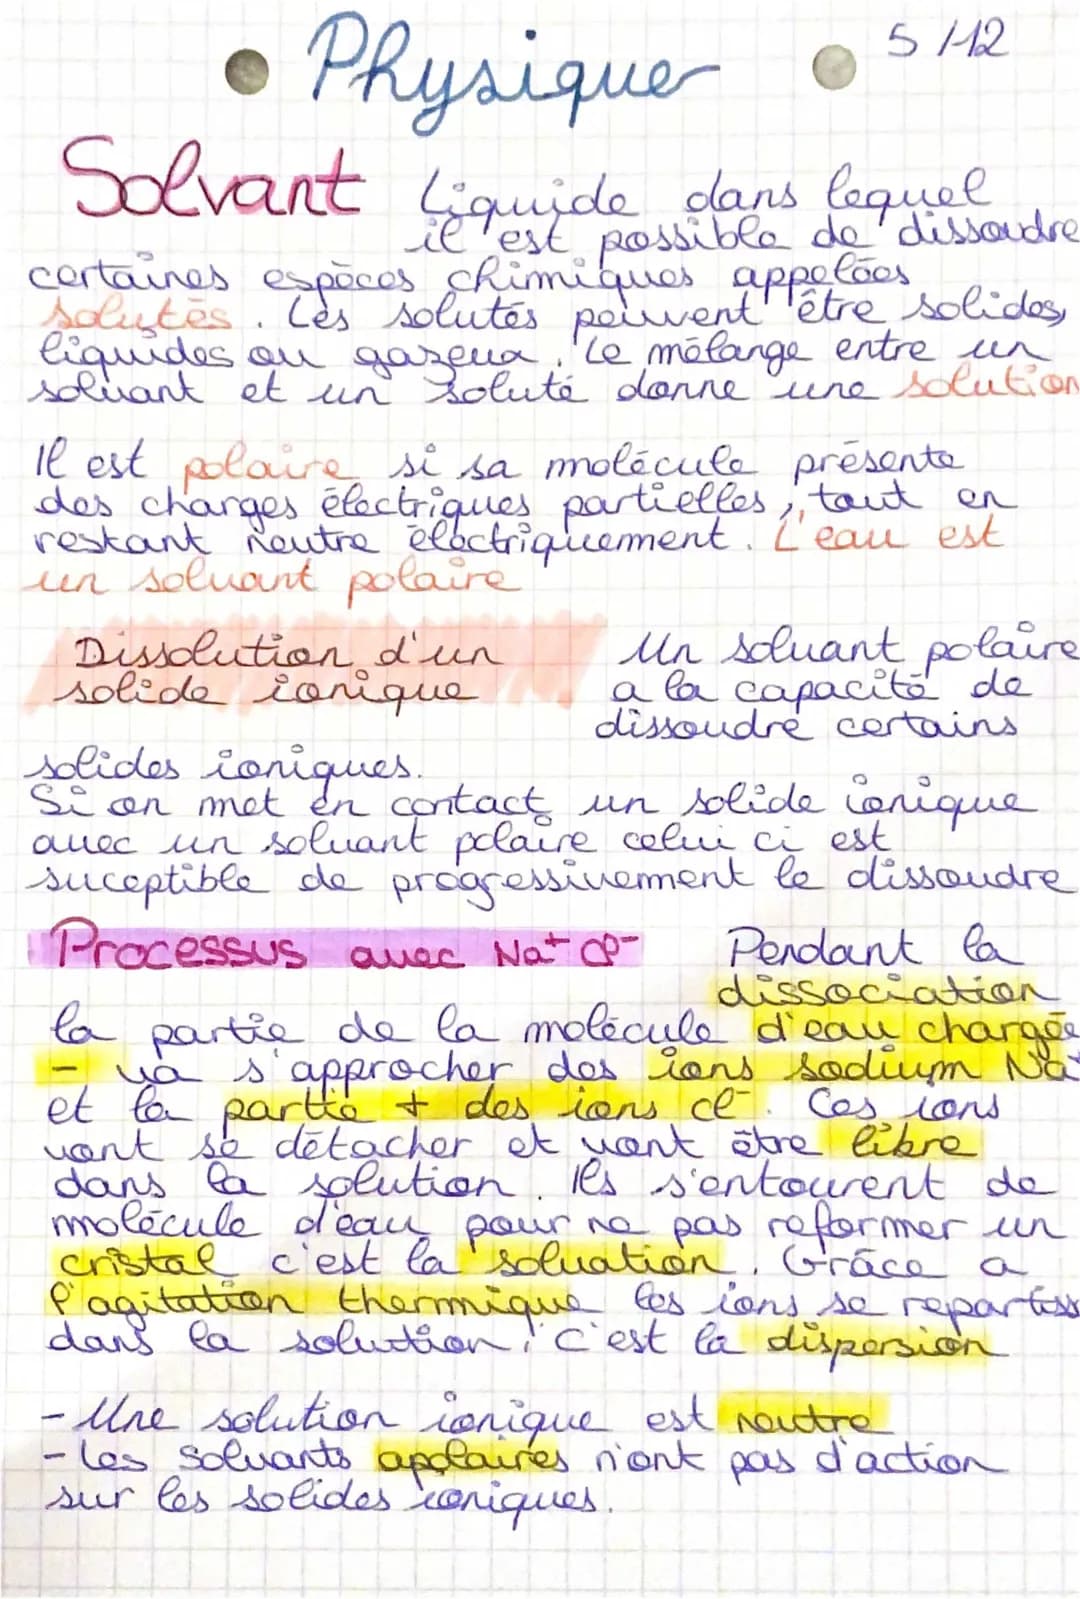 Physique
5/12
Solvant Liquide dans lequel
il est possible de dissoudre
certaines espèces chimiques appelées
solutés. Les solutés peuvent être solides,
liquides ou gazeux. Le mélange entre un
solvant et un soluté donne une solution
Il est polaire si sa molécule présente
des charges électriques partielles, tout en
restant neutre électriquement. L'eau est
un solvant polaire
Dissolution d'un
solide ionique
Un solvant polaire
a la capacité de
dissoudre certains
solides ioniques.
Si on met en contact un solide ionique
avec un solvant polaire celui ci est
suceptible de progressivement le dissoudre
Processus avec Na+ Cl-
Pendant la
dissociation
la partie de la molécule d'eau chargée
- va s'approcher des ions sodium Na+
et la partie + des ions cl-. Ces ions
vont se détacher et vont être libre
dans la solution. Ils s'entourent de
molécule d'eau pour ne pas reformer un
cristal c'est la solvation. Grâce a
l'agitation thermique les ions se repartiss
dans la solution, c'est la dispersion
- Une solution ionique est neutre
- Les solvants apolaires n'ont pas d'action
sur les solides ioniques.